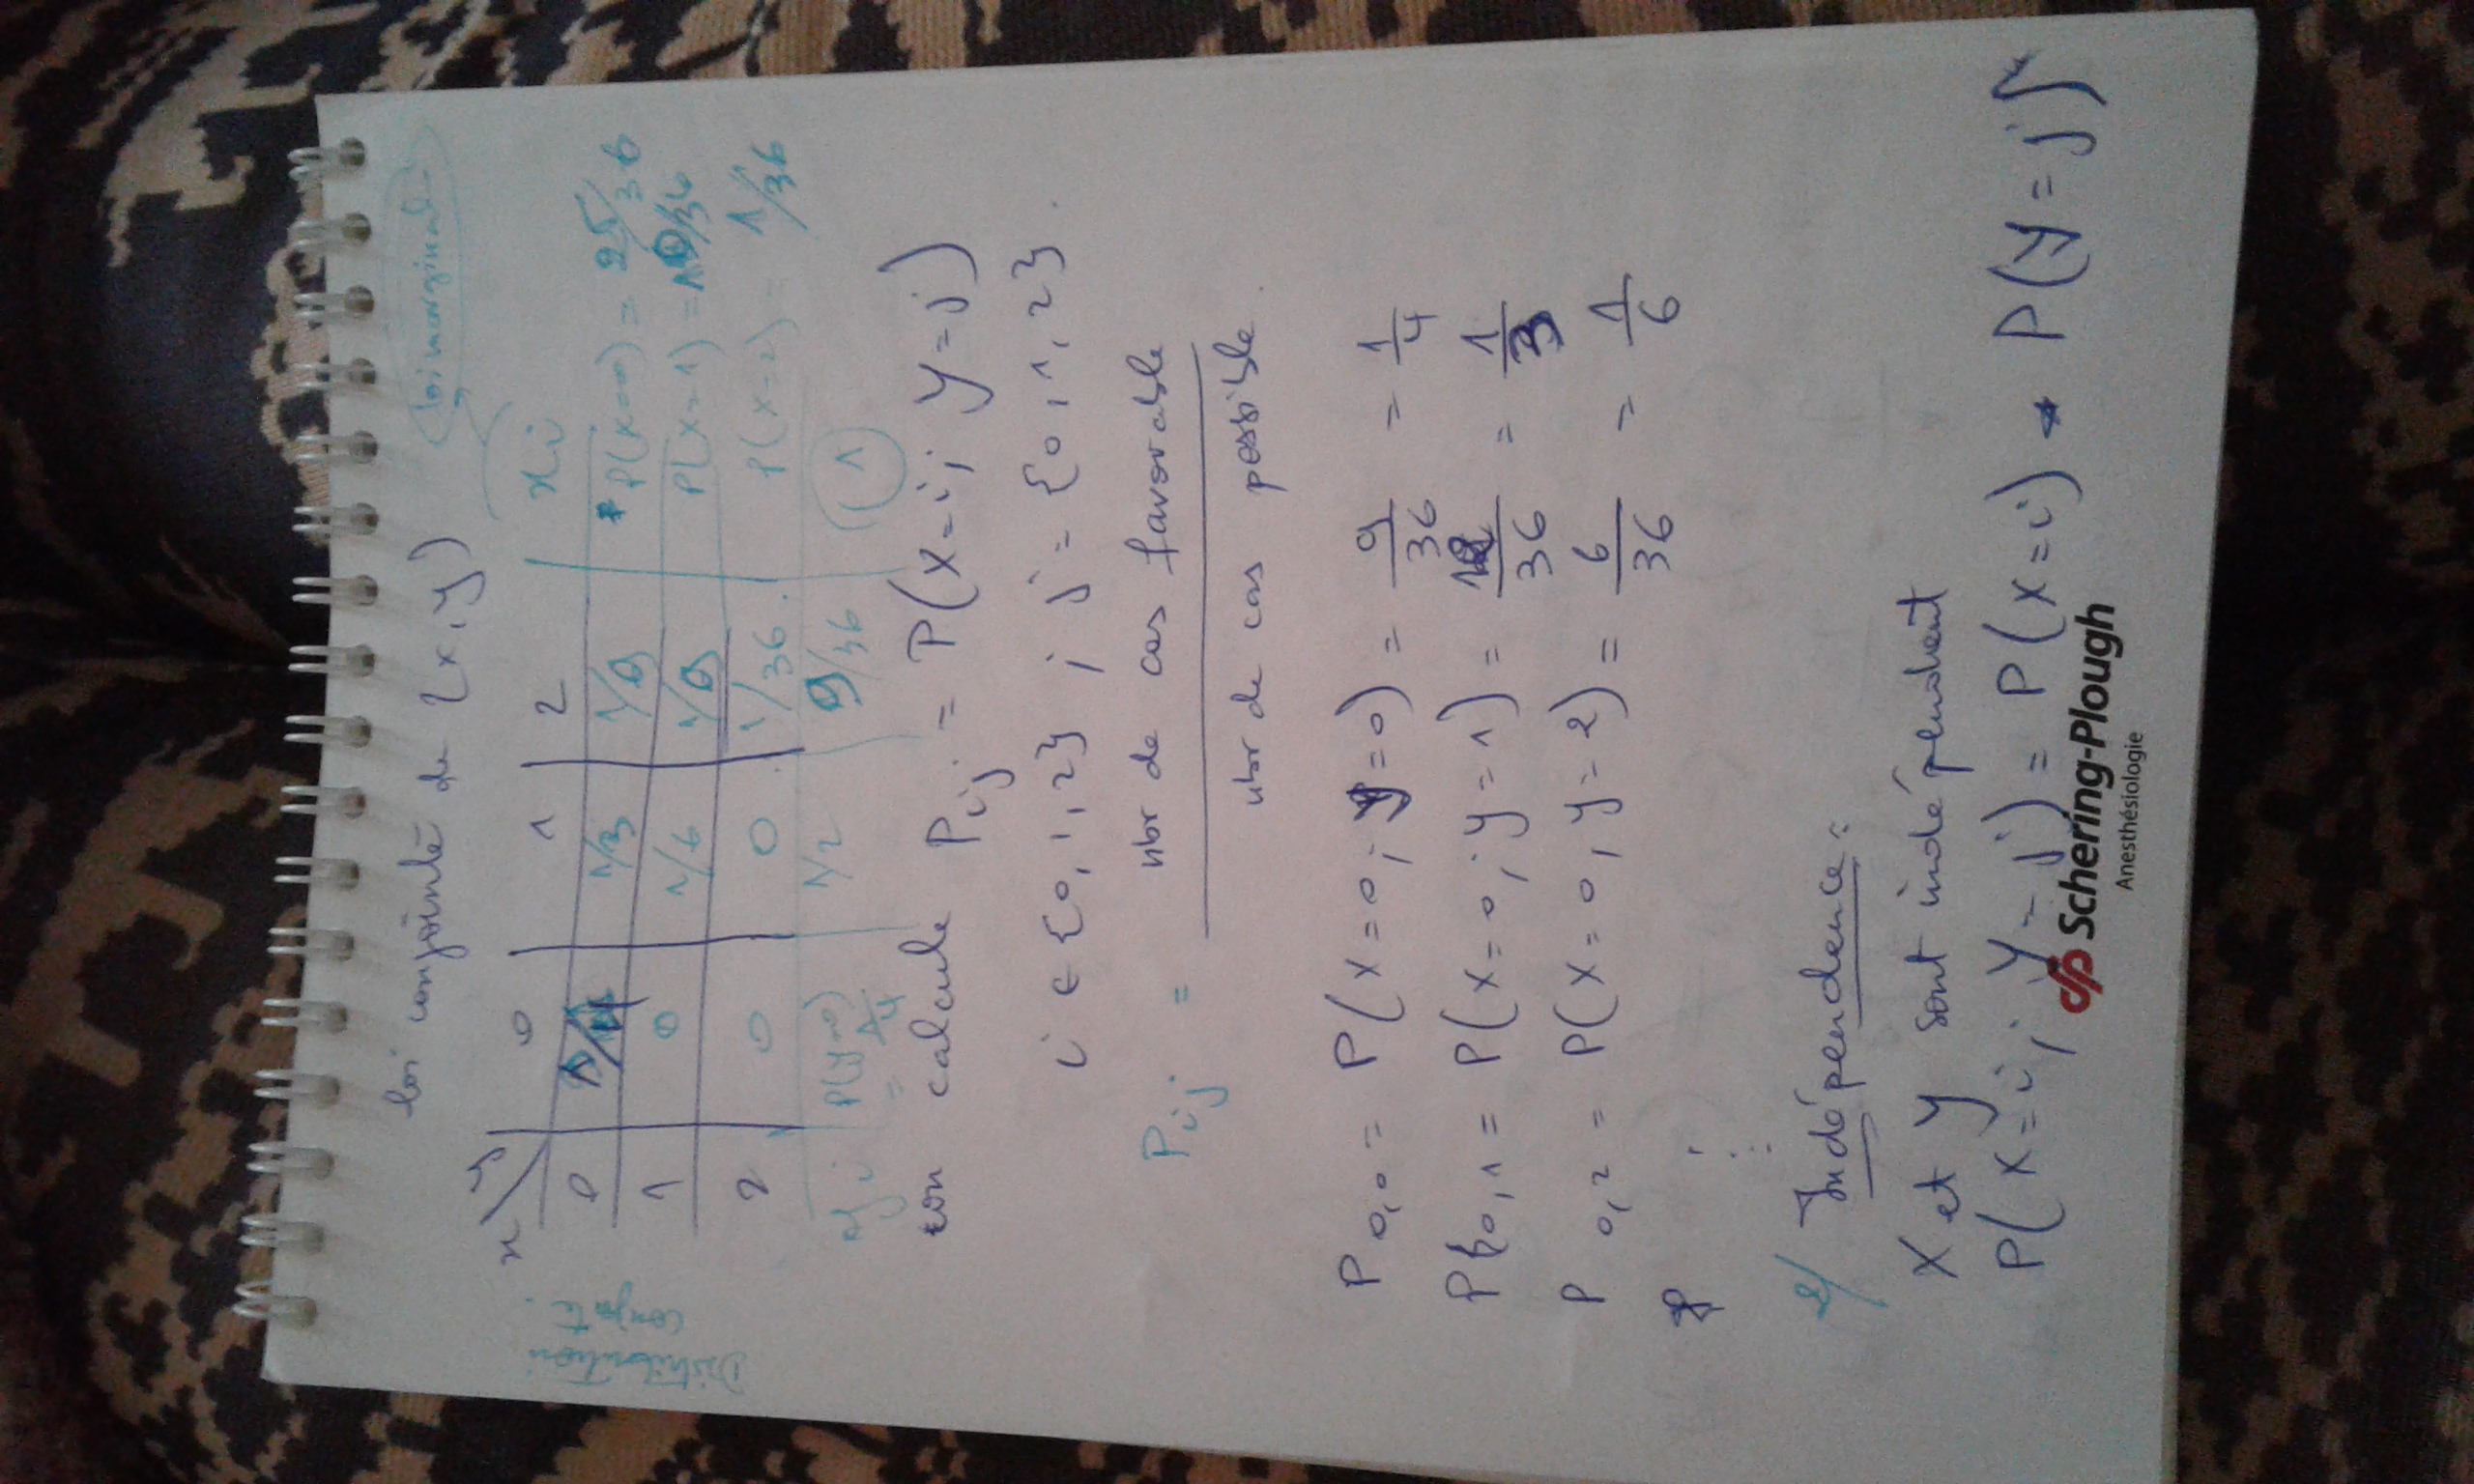 loi conjointe de (x, y)
loi marginal
Distribution conjointe.
x / y | 0 | 1 | 2 | xi
0 | 1/4 | 1/3 | 1/9 | P(x=0) = 25/36
1 | 0 | 1/6 | 1/9 | P(X=1) = 10/36
2 | 0 | 0 | 1/36 | P(x=2) = 1/36
yi | P(y=0) = 1/4 | 1/2 | 9/36 | 1
on calcule Pij = P(X=i; y=j)
i ∈ {0, 1, 2} ; j = {0, 1, 2}.
Pij = nbr de cas favorable / nbr de cas possible.
P0,0 = P(X=0; y=0) = 9/36 = 1/4
P0,1 = P(x=0; y=1) = 12/36 = 1/3
P0,2 = P(X=0, y=2) = 6/36 = 1/6
P
2/ Indépendence:
X et y sont indépendent
P(X=i; y=j) = P(x=i) * P(y=j)
Schering-Plough
Anesthésiologie